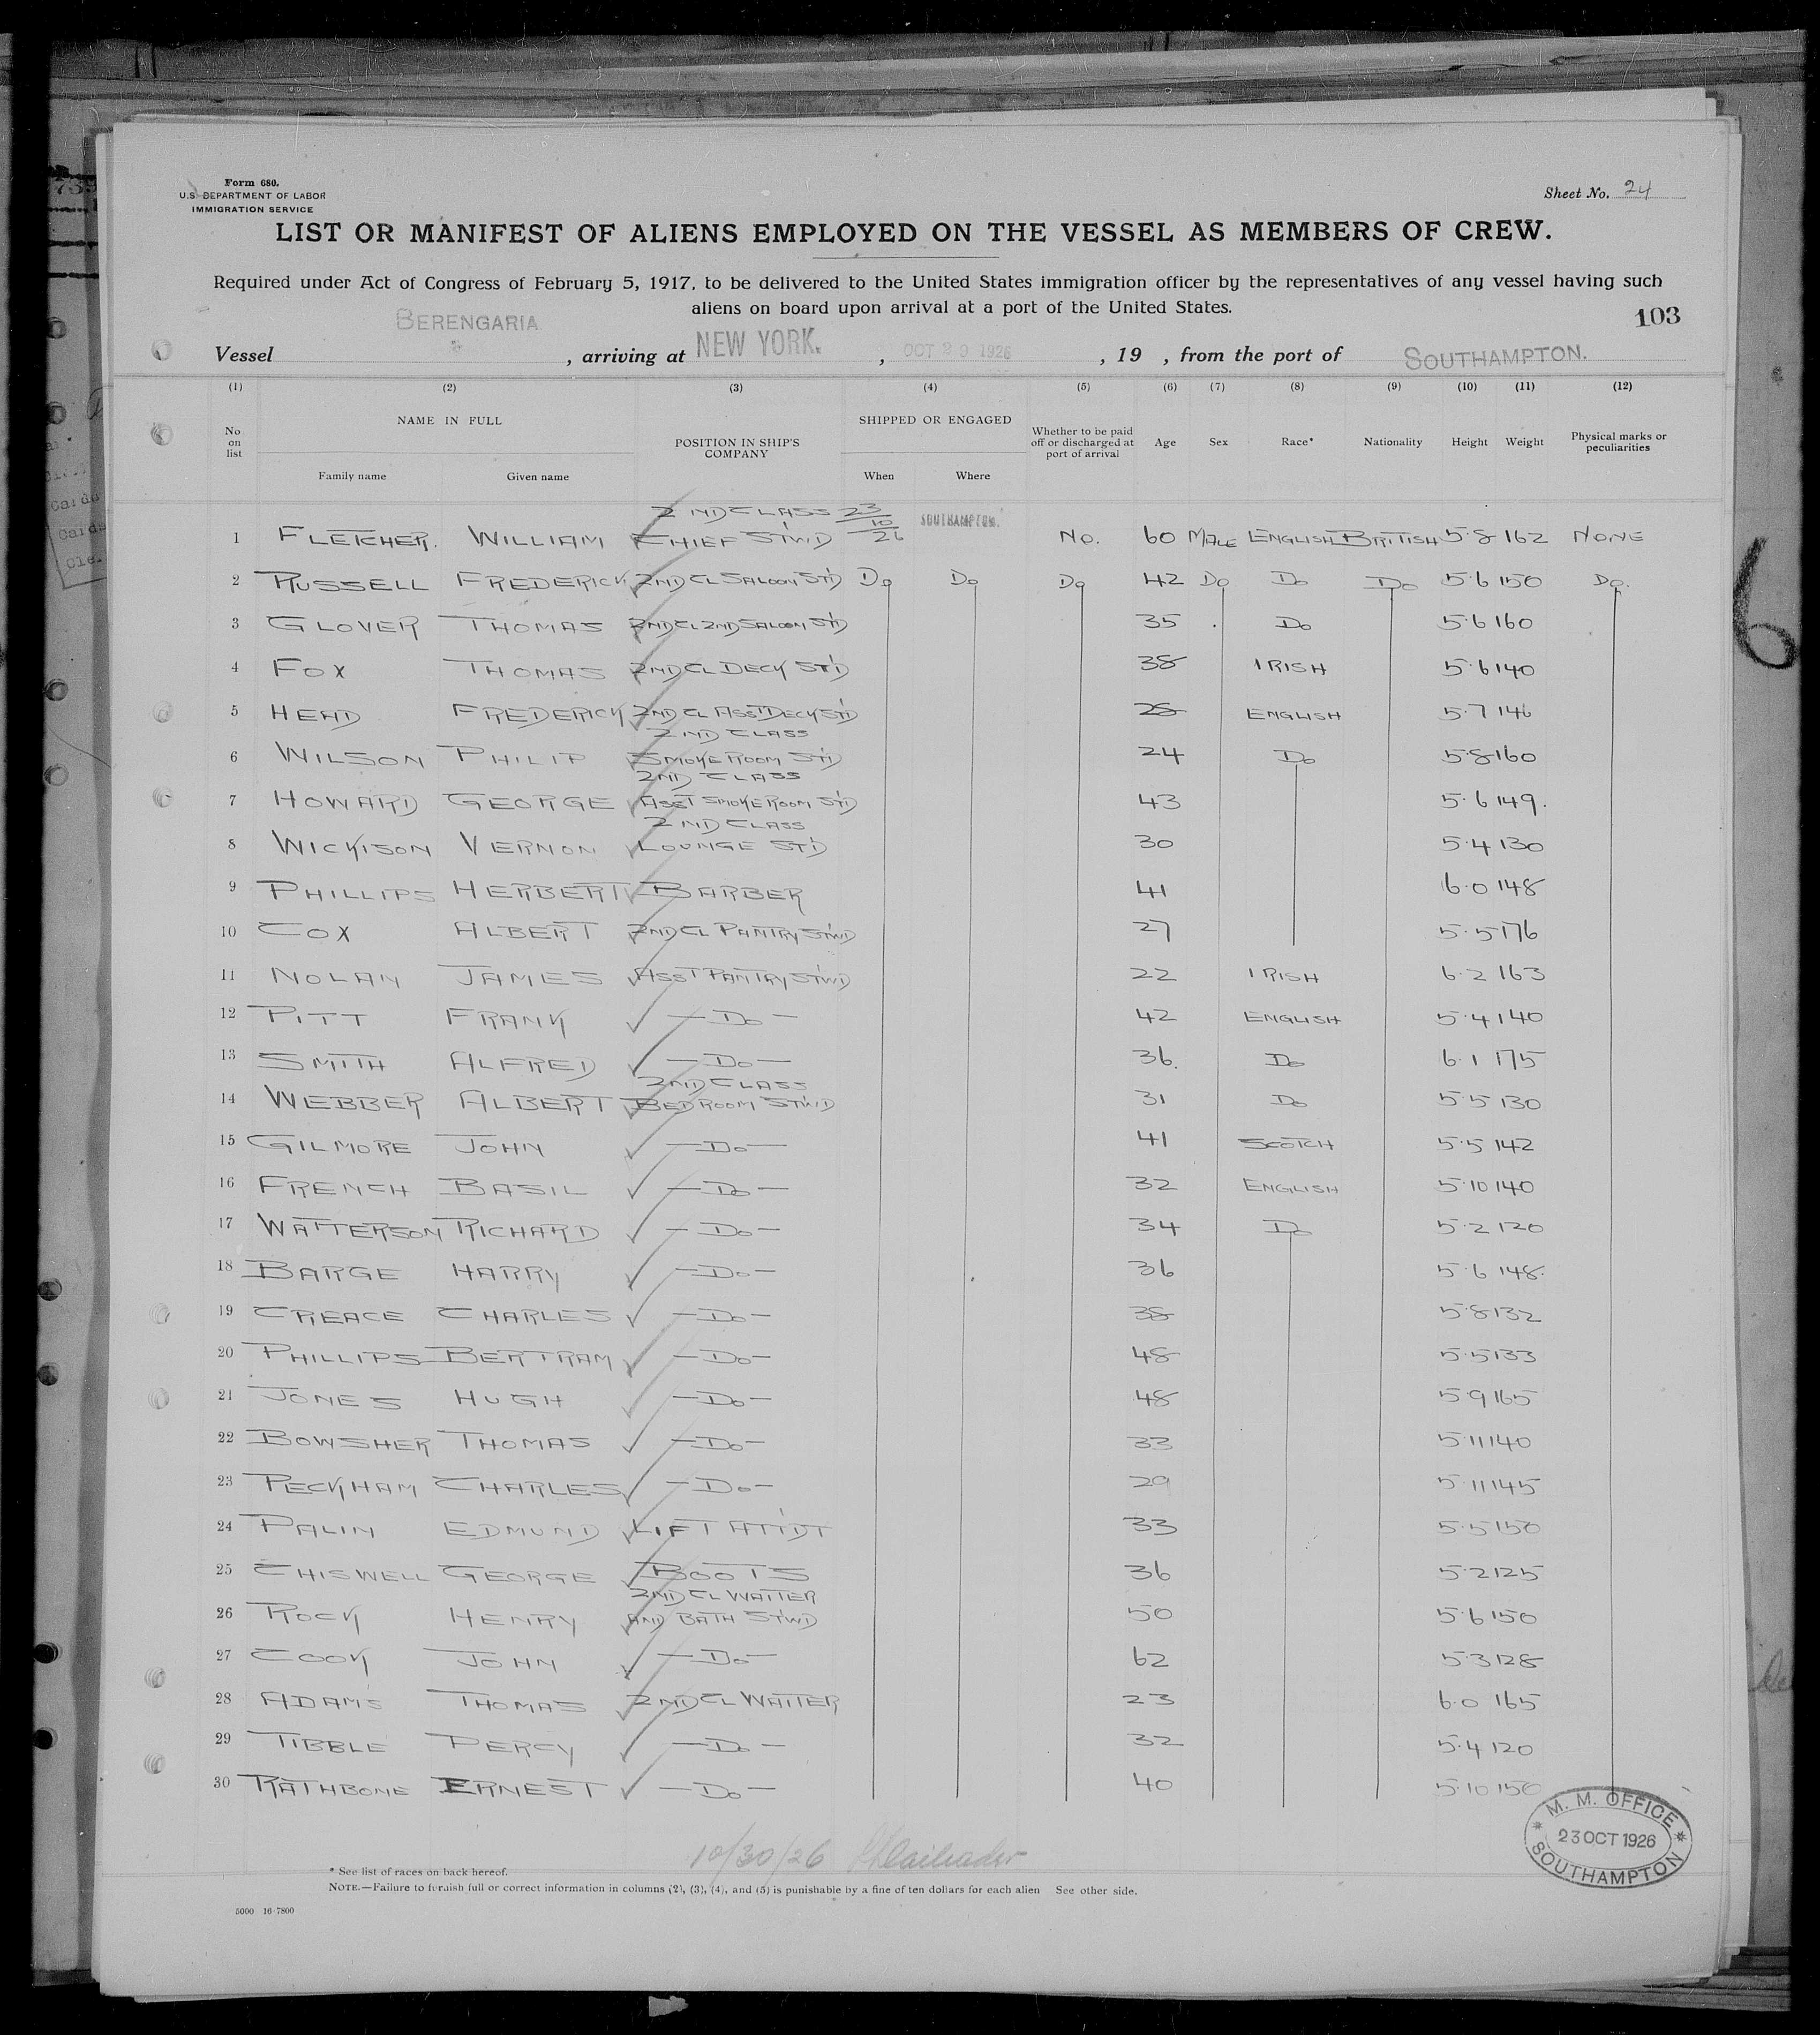 Form 680.
U.S. DEPARTMENT OF LABOR
IMMIGRATION SERVICE
Sheet No. 24
LIST OR MANIFEST OF ALIENS EMPLOYED ON THE VESSEL AS MEMBERS OF CREW.
Required under Act of Congress of February 5, 1917, to be delivered to the United States immigration officer by the representatives of any vessel having such
aliens on board upon arrival at a port of the United States.
103
Vessel BERENGARIA, arriving at NEW YORK., OCT 29 1926, 19 , from the port of SOUTHAMPTON.
(1) (2) (3) (4) (5) (6) (7) (8) (9) (10) (11) (12)
No on list NAME IN FULL Family name Given name POSITION IN SHIP'S COMPANY SHIPPED OR ENGAGED When Where Whether to be paid off or discharged at port of arrival Age Sex Race* Nationality Height Weight Physical marks or peculiarities
1 FLETCHER. WILLIAM 2ND CLASS CHIEF STWD 23/10/26 SOUTHAMPTON. NO. 60 MALE ENGLISH BRITISH 5·8 162 NONE
2 RUSSELL FREDERICK 2ND CL SALOON STD DO DO DO 42 DO DO DO 5·6 150 DO.
3 GLOVER THOMAS 2ND CL 2ND SALOON STD 35 DO 5·6 160
4 FOX THOMAS 2ND CL DECK STD 38 IRISH 5·6 140
5 HEAD FREDERICK 2ND CL ASST DECK STD 28 ENGLISH 5·7 146
6 WILSON PHILIP 2ND CLASS SMOKE ROOM STD 24 DO 5·8 160
7 HOWARD GEORGE 2ND CLASS ASST SMOKE ROOM STD 43 5·6 149.
8 WICKISON VERNON 2ND CLASS LOUNGE STD 30 5·4 130
9 PHILLIPS HERBERT BARBER 41 6·0 148
10 COX ALBERT 2ND CL PANTRY STWD 27 5·5 176
11 NOLAN JAMES ASST PANTRY STWD 22 IRISH 6·2 163
12 PITT FRANK — DO — 42 ENGLISH 5·4 140
13 SMITH ALFRED — DO — 36. DO 6·1 175
14 WEBBER ALBERT 2ND CLASS BEDROOM STWD 31 DO 5·5 130
15 GILMORE JOHN — DO — 41 SCOTCH 5·5 142
16 FRENCH BASIL — DO — 32 ENGLISH 5·10 140
17 WATTERSON RICHARD — DO — 34 DO 5·2 120
18 BARGE HARRY — DO — 36 5·6 148.
19 CREACE CHARLES — DO — 38 5·8 132
20 PHILLIPS BERTRAM — DO — 48 5·5 133
21 JONES HUGH — DO — 48 5·9 165
22 BOWSHER THOMAS — DO — 33 5·11 140
23 PECKHAM CHARLES — DO — 29 5·11 145
24 PALIN EDMUND LIFT ATTDT 33 5·5 150
25 CHISWELL GEORGE BOOTS 36 5·2 125
26 ROCK HENRY 2ND CL WAITER AND BATH STWD 50 5·6 150
27 COOK JOHN — DO — 62 5·3 128
28 ADAMS THOMAS 2ND CL WAITER 23 6·0 165
29 TIBBLE PERCY — DO — 32 5·4 120
30 RATHBONE ERNEST — DO — 40 5·10 150
M. M. OFFICE
23 OCT 1926
SOUTHAMPTON
10/30/26
* See list of races on back hereof.
NOTE.—Failure to furnish full or correct information in columns (2), (3), (4), and (5) is punishable by a fine of ten dollars for each alien See other side.
5000 16-7800
6